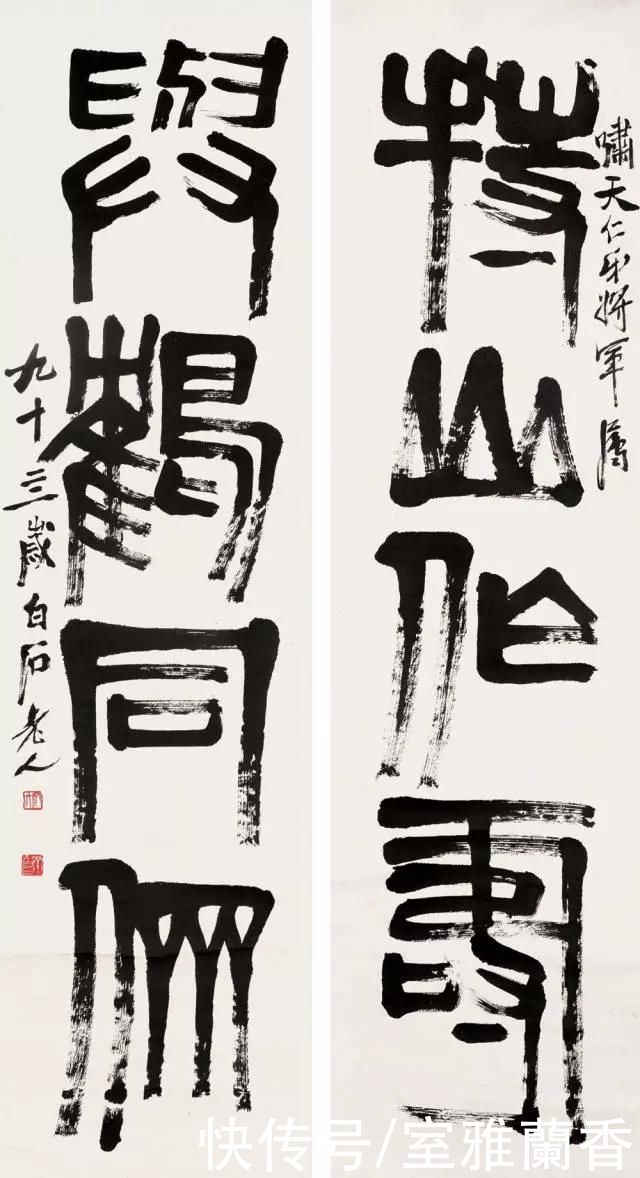 嘯天仁弟將軍屬
持山作壽
與鶴同儕
九十三歲白石老人
快传号/室雅蘭香